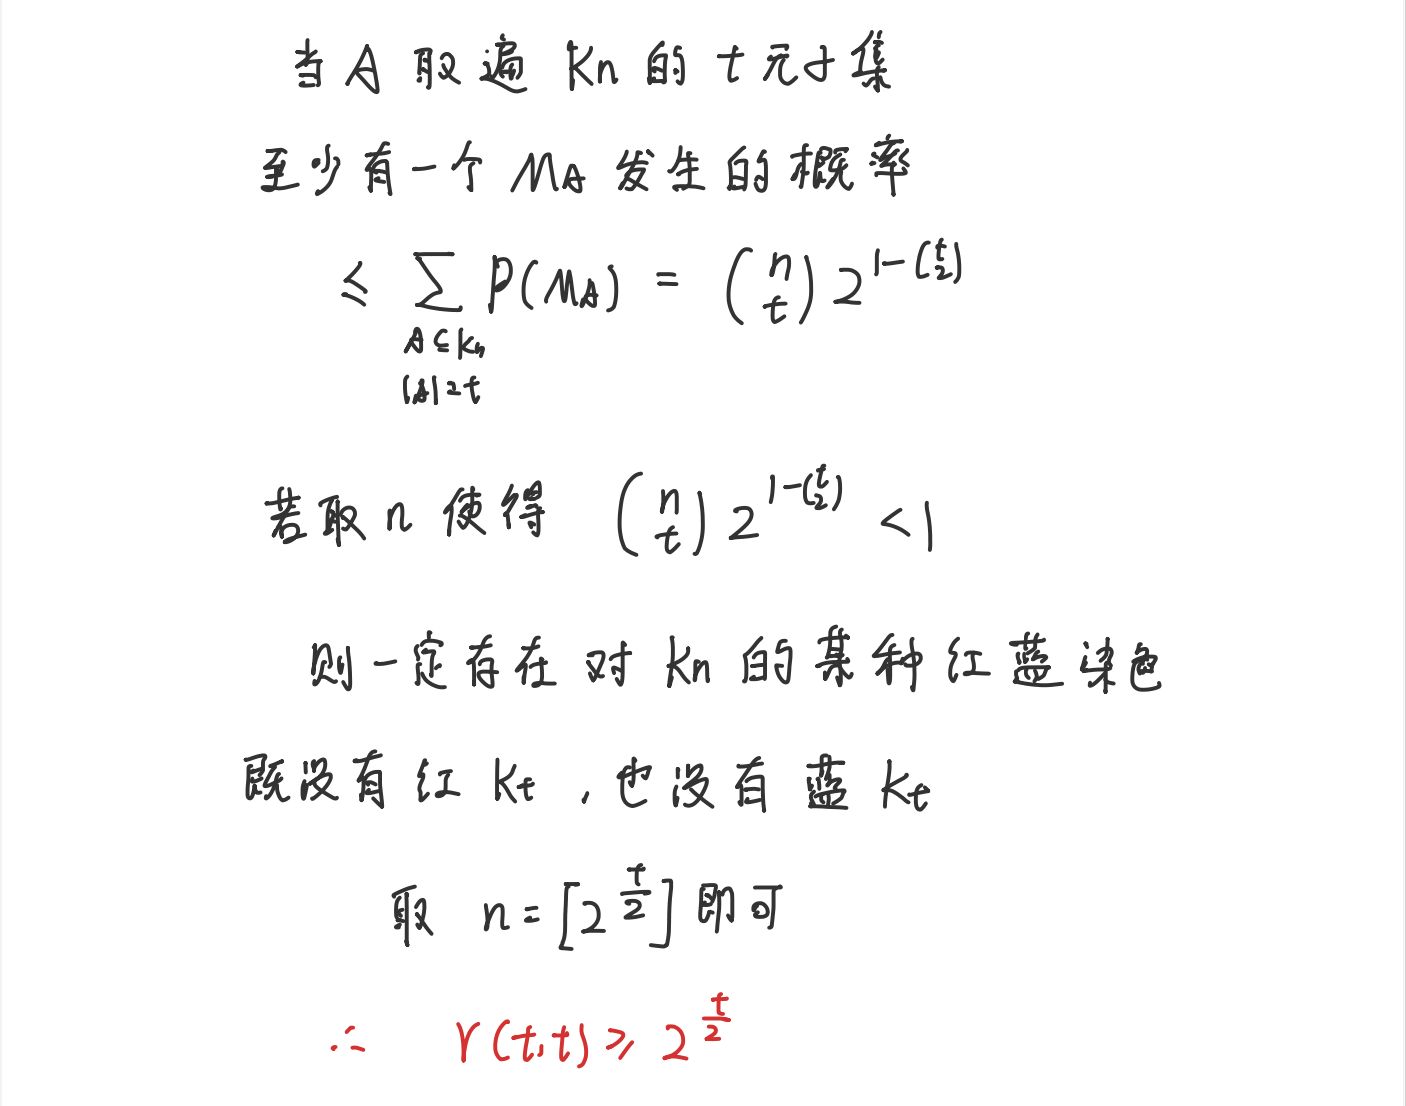 当A取遍Kn的t元子集
至少有一个MA发生的概率
≤ ∑ P(MA) = (n t) 2^{1-(t 2)}
A⊆Kn
|A|=t
若取n使得 (n t) 2^{1-(t 2)} <1
则一定存在对Kn的某种红蓝染色
既没有红Kt，也没有蓝Kt
取 n=[2^{t/2}] 即可
∴ r(t,t)≥2^{t/2}